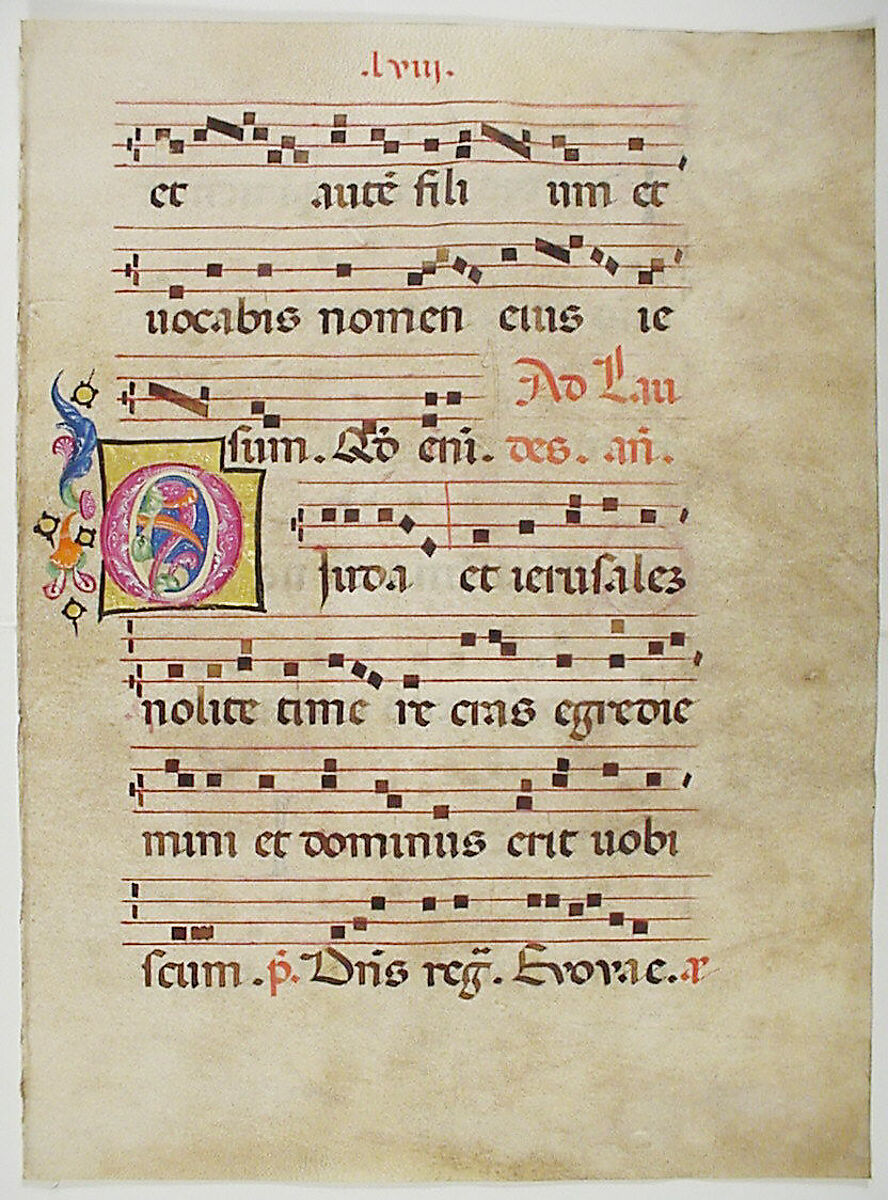 .lviij.
et autē fili um et
uocabis nomen eius ie
sum. Qd̄ eni̅. Ad Lau
des. an̄.
O Juda et ierusalez
nolite time re cras egredie
mini et dominus erit uobi
scum. p̄. Dn̄s reḡ. Evovae. a